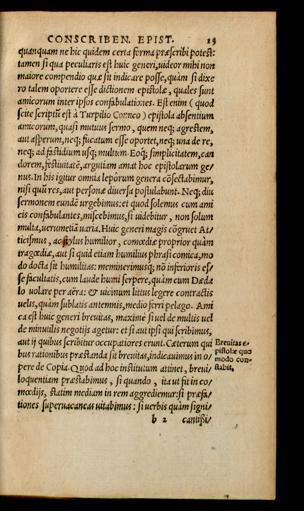 CONSCRIBEN. EPIST. 15
quanquam ne hic quidem certa forma præscribi potest:
tamen si qua peculiaris est huic generi, uideor mihi non
maiore compendio quæ sit indicare posse, quàm si dixe
ro talem oportere esse dictionem epistolæ, quales sunt
amicorum inter ipsos confabulationes. Est enim (quod
scitè scriptũ est à Turpilio Comico) epistola absentium
amicorum, quasi mutuus sermo, quem neq; agrestem,
aut asperum, neq; fucatum esse oportet, neq; una de re,
neq; ad fastidium usq; multum. Eoq; simplicitatem, can
dorem, festiuitatẽ, argutiam amat hoc epistolarum ge/
nus. In his igitur omnia leporum genera cõsectabimur,
nisi quũ res, aut personæ diuersa postulabunt. Neq; diu
sermonem eundẽ urgebimus: et quod solemus cum ami
cis confabulantes, miscebimus, si uidebitur, non solum
multa, uerumetiã uaria. Huic generi magis cõgruet At/
ticismus, ac stylus humilior, comœdiæ proprior quàm
tragœdiæ, aut si quid etiam humilius phrasi comica, mo
do docta sit humilitas: meminerimusq; nõ inferioris es/
se facultatis, cum laude humi serpere, quàm cum Dæda
lo uolare per aëra: & uicinum littus legere contractis
uelis, quàm sublatis antemnis, medio ferri pelago. Ami
ca est huic generi breuitas, maximè si uel de multis uel
de minutulis negotijs agetur: et si aut ipsi qui scribimus,
aut ij quibus scribitur occupatiores erunt. Cæterum qui
bus rationibus præstanda sit breuitas, indicauimus in o/
pere de Copia. Quod ad hoc institutum attinet, breui/
loquentiam præstabimus, si quando, ita ut fit in co/
mœdijs, statim mediam in rem aggrediemur: si præfa/
tiones superuacaneas uitabimus: si uerbis quàm signi/
b 2 cantissi/
Breuitas e/
pistolæ quo
modo con/
stabit.